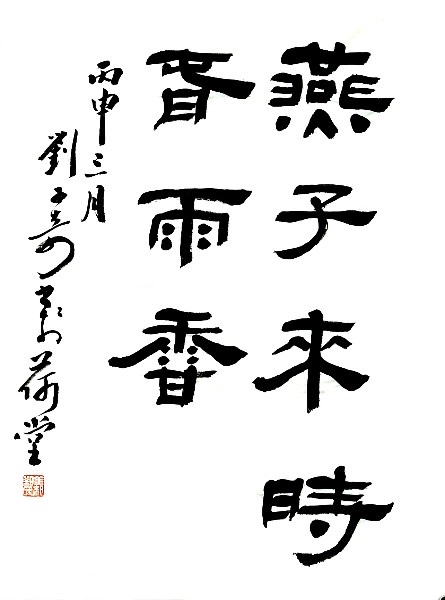 燕子來時
春雨香
丙申三月
劉子書於荷堂